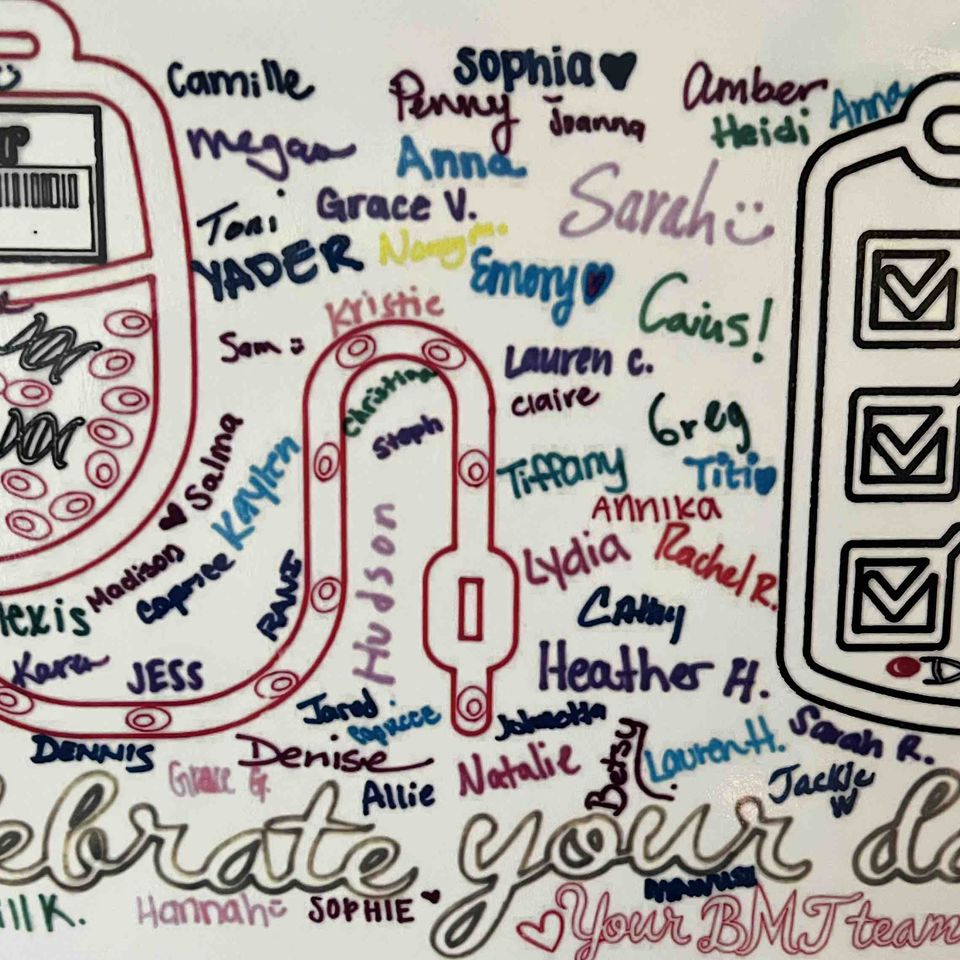 Camille
Sophia
Penny
Joanna
Amber
Anna
Heidi
Megan
Anna
Grace V.
Sarah
Toni
YADER
Emory
Kristie
Caius!
Sam
Lauren C.
Claire
Christina
Steph
Greg
Salma
Kaylin
Tiffany
Titi
ANNIKA
Hudson
Lydia
Rachel R.
Madison
Caprice
RANI
lexis
CATHY
Kara
JESS
Heather H.
Jarod
Caprice
Sarah R.
DENNIS
Denise
Natalie
Betsy
Lauren H.
Jackie W
Grace G
Allie
ebrate your da
ill K.
Hannah
SOPHIE
Your BMT team